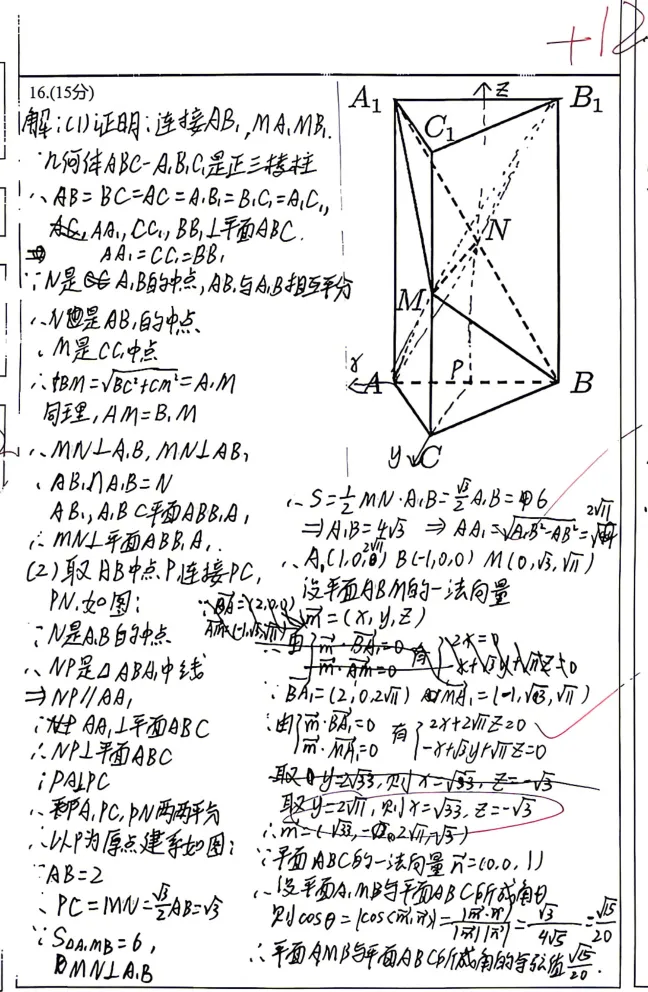 +12
16.(15分)
解:(1)证明:连接AB₁,MA,MB₁.
几何体ABC-A₁B₁C₁是正三棱柱
∴AB=BC=AC=A₁B₁=B₁C₁=A₁C₁,
AA₁,CC₁,BB₁⊥平面ABC.
⇒ AA₁=CC₁=BB₁
∵N是A₁B的中点,AB₁与A₁B相互平分
∴N也是AB₁的中点
∵M是CC₁中点
∴BM=√BC²+CM²=A₁M
同理,AM=B₁M
∴MN⊥A₁B,MN⊥AB₁
∵AB₁∩A₁B=N
AB₁,A₁B⊂平面ABB₁A₁
∴MN⊥平面ABB₁A₁.
(2)取AB中点P,连接PC,
PN.如图:
∵N是A₁B的中点
∴NP是△ABA₁中线
⇒NP∥AA₁
∵AA₁⊥平面ABC
∴NP⊥平面ABC
∵PA⊥PC
∴PA,PC,PN两两垂直
∴以P为原点建系如图:
∵AB=2
∴PC=MN=√3/2AB=√3
∵S△A₁MB=6,
MN⊥A₁B
A₁
B₁
C₁
z
N
M
x
A
P
B
y
C
∴S=1/2MN·A₁B=√3/2A₁B=6
⇒A₁B=4√3 ⇒AA₁=√A₁B²-AB²=2√11
∴A₁(1,0,2√11) B(-1,0,0) M(0,√3,√11)
设平面A₁BM的一法向量
m=(x,y,z)
BA=(2,0,0)
AM=(-1,√3,√11)
∴由{m·BA₁=0 有{2x=0
m·AM=0 -x+√3y+√11z=0
∵BA₁=(2,0,2√11) MA₁=(-1,√3,√11)
∴由{m·BA₁=0 有{2x+2√11z=0
m·MA₁=0 -x+√3y+√11z=0
取y=2√33,则x=√33,z=-√3
取y=2√11,则x=√33,z=-√3
∴m=(√33,2√11,-√3)
∵平面ABC的一法向量n=(0,0,1)
∴设平面A₁MB与平面ABC所成角θ
则cosθ=|cos<m,n>|=|m·n|/|m||n|=√3/4√5=√15/20
∴平面A₁MB与平面ABC所成角的余弦值√15/20.